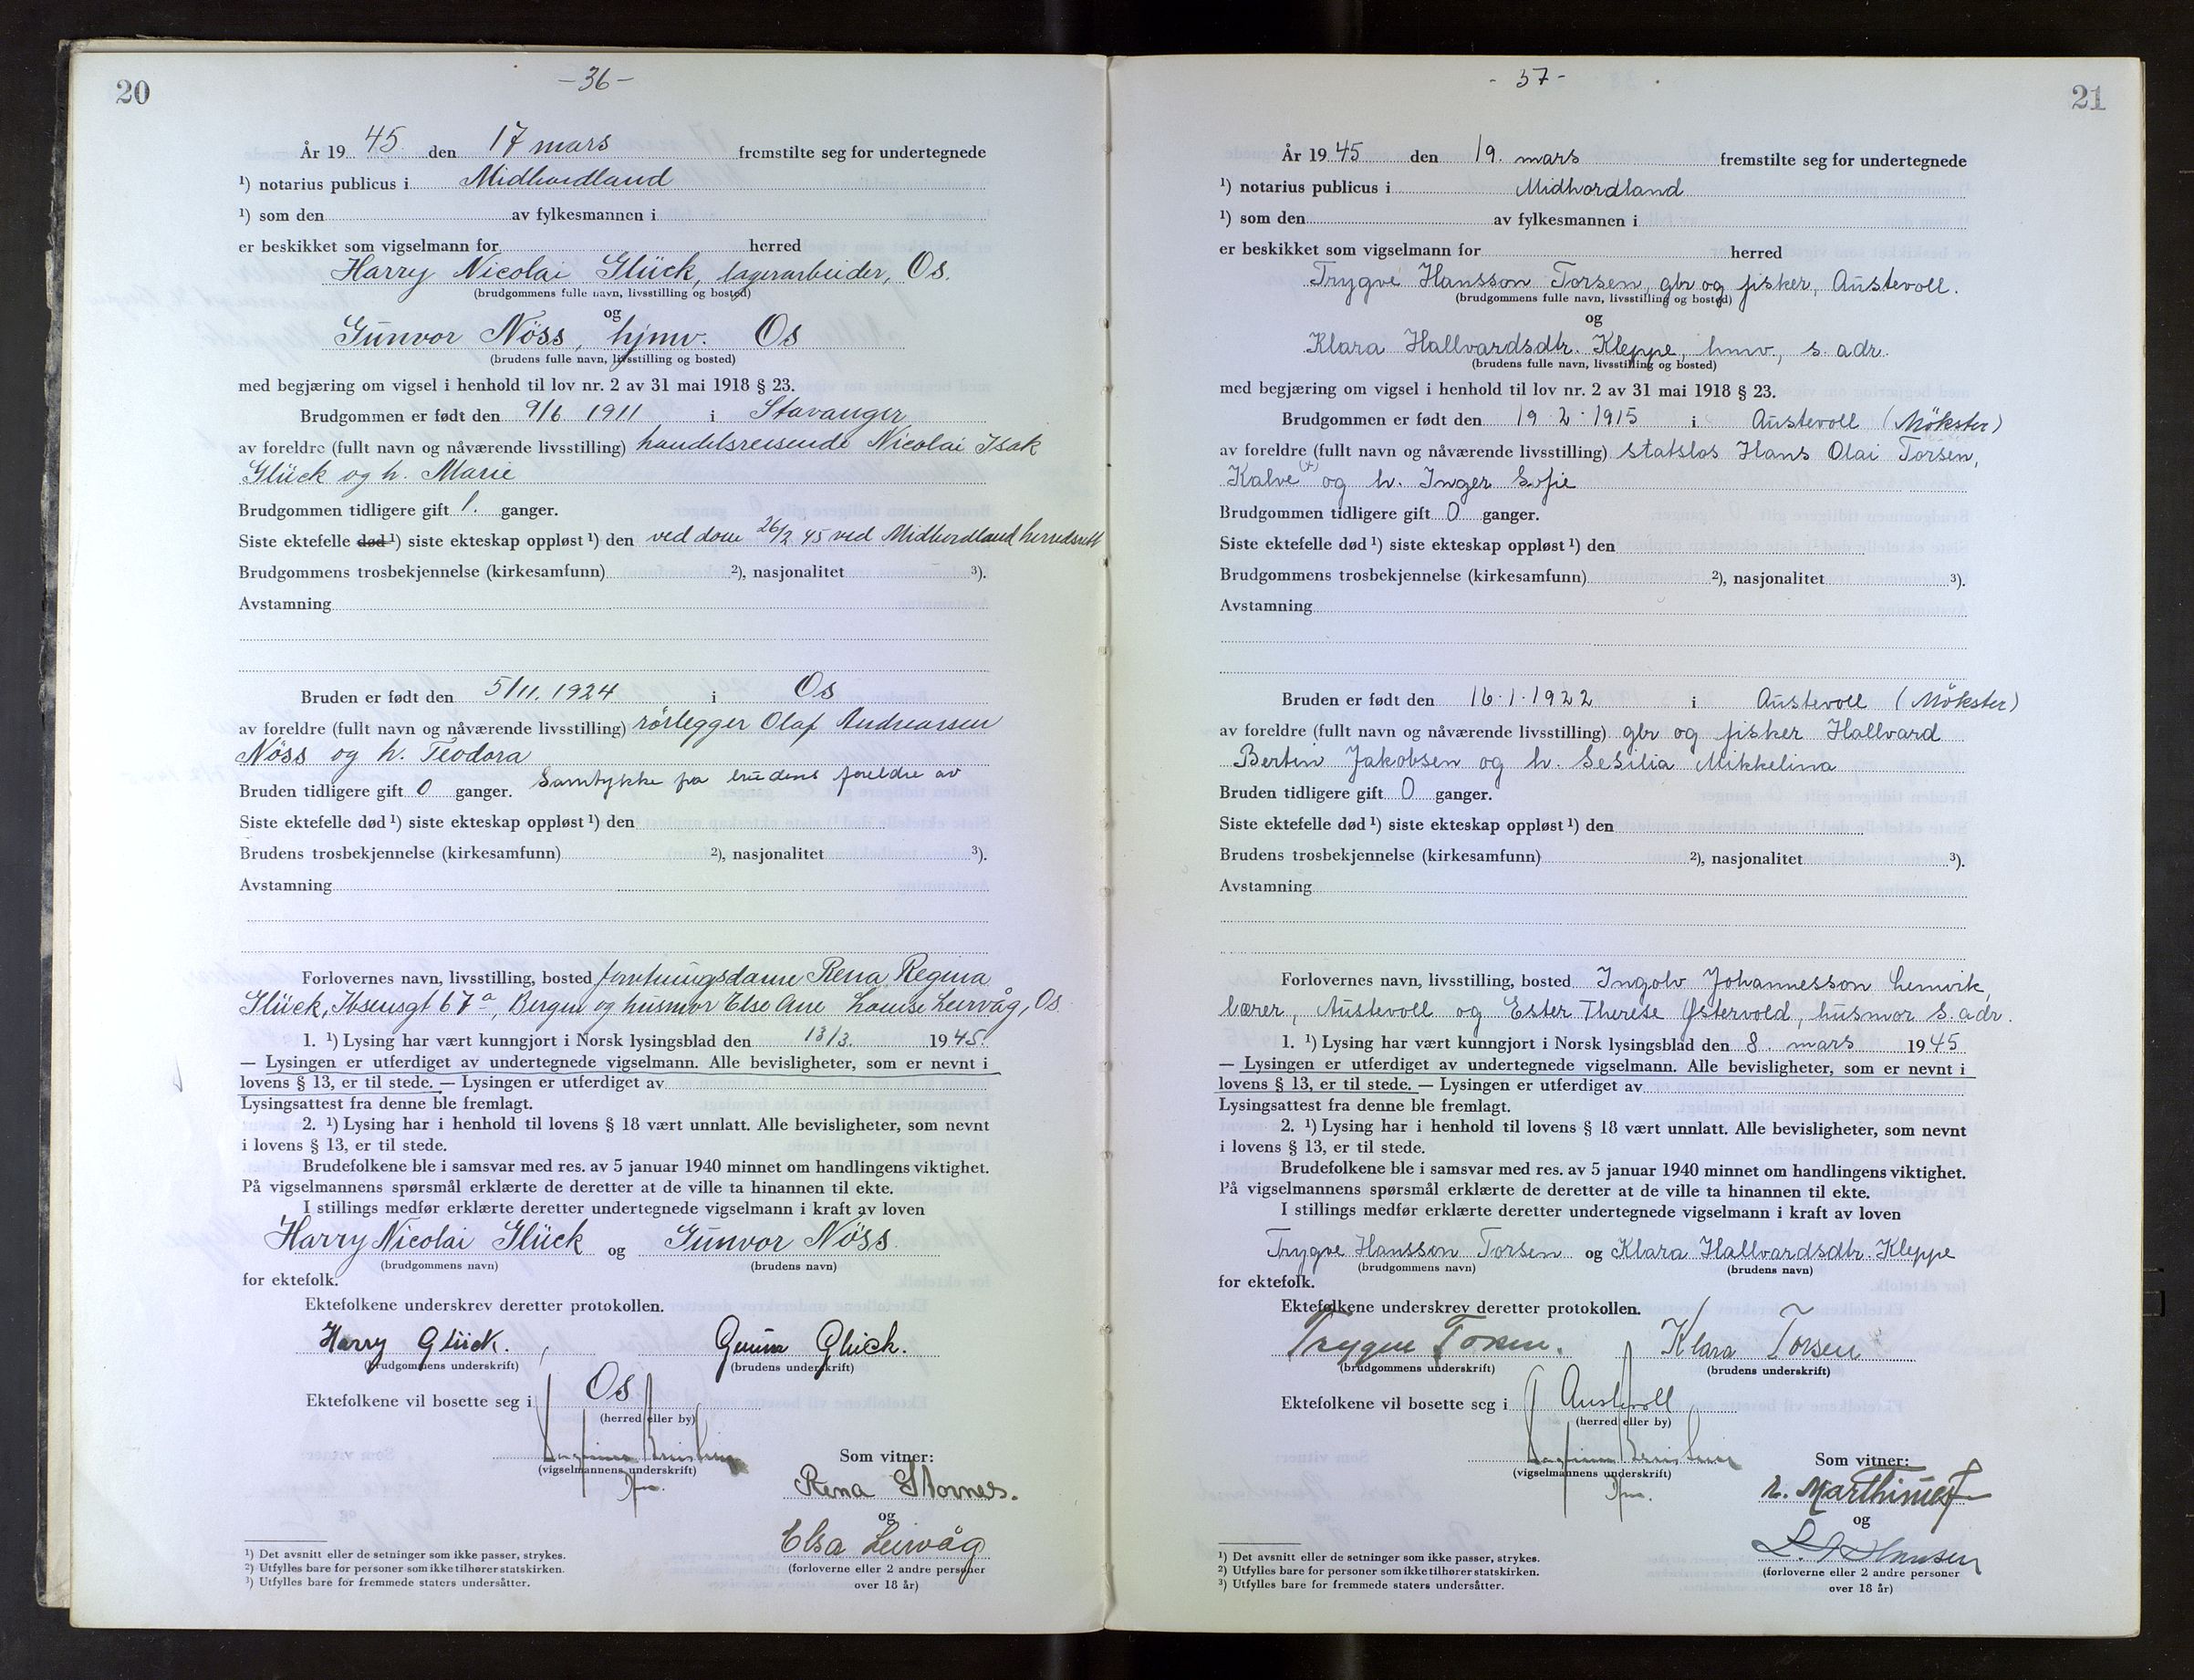 20
- 36 -
År 19 45 den 17 mars fremstilte seg for undertegnede
¹) notarius publicus i Midhordland
¹) som den av fylkesmannen i
er beskikket som vigselmann for herred
Harry Nicolai Glück, lagerarbeider, Os.
(brudgommens fulle navn, livsstilling og bosted)
og
Gunvor Nöss, hjmv. Os
(brudens fulle navn, livsstilling og bosted)
med begjæring om vigsel i henhold til lov nr. 2 av 31 mai 1918 § 23.
Brudgommen er født den 9/6 1911 i Stavanger
av foreldre (fullt navn og nåværende livsstilling) handelsreisende Nicolai Isak
Glück og h. Marie
Brudgommen tidligere gift 1. ganger.
Siste ektefelle død ¹) siste ekteskap oppløst ¹) den ved dom 26/2 45 ved Midhordland herredsrett
Brudgommens trosbekjennelse (kirkesamfunn) ²), nasjonalitet ³).
Avstamning
Bruden er født den 5/11. 1924 i Os
av foreldre (fullt navn og nåværende livsstilling) rörlegger Olaf Andreassen
Nöss og h. Teodora
Bruden tidligere gift 0 ganger. Samtykke fra brudens foreldre av
Siste ektefelle død ¹) siste ekteskap oppløst ¹) den
Brudens trosbekjennelse (kirkesamfunn) ²), nasjonalitet ³).
Avstamning
Forlovernes navn, livsstilling, bosted forretningsdame Rena Regina
Glück, Ibsensgt 67 a, Bergen og husmor Else Ane Louise Leirvåg, Os.
1. ¹) Lysing har vært kunngjort i Norsk lysingsblad den 13/3. 19 45.
— Lysingen er utferdiget av undertegnede vigselmann. Alle bevisligheter, som er nevnt i
lovens § 13, er til stede. — Lysingen er utferdiget av
Lysingsattest fra denne ble fremlagt.
2. ¹) Lysing har i henhold til lovens § 18 vært unnlatt. Alle bevisligheter, som nevnt
i lovens § 13, er til stede.
Brudefolkene ble i samsvar med res. av 5 januar 1940 minnet om handlingens viktighet.
På vigselmannens spørsmål erklærte de deretter at de ville ta hinannen til ekte.
I stillings medfør erklærte deretter undertegnede vigselmann i kraft av loven
Harry Nicolai Glück og Gunvor Nöss.
(brudgommens navn) (brudens navn)
for ektefolk.
Ektefolkene underskrev deretter protokollen.
Harry Glück. Gunvor Glück.
(brudgommens underskrift) (brudens underskrift)
Ektefolkene vil bosette seg i Os
(herred eller by)
Som vitner:
(vigselmannens underskrift)
Rena Stornes.
og
Elsa Leirvåg
(forloverne eller 2 andre personer
over 18 år)
¹) Det avsnitt eller de setninger som ikke passer, strykes.
²) Utfylles bare for personer som ikke tilhører statskirken.
³) Utfylles bare for fremmede staters undersåtter.
21
- 37 -
År 19 45 den 19. mars fremstilte seg for undertegnede
¹) notarius publicus i Midhordland
¹) som den av fylkesmannen i
er beskikket som vigselmann for herred
Trygve Hansson Torsen, gbr og fisker, Austevoll.
(brudgommens fulle navn, livsstilling og bosted)
og
Klara Hallvardsdtr. Kleppe, hmv., s. adr.
(brudens fulle navn, livsstilling og bosted)
med begjæring om vigsel i henhold til lov nr. 2 av 31 mai 1918 § 23.
Brudgommen er født den 19. 2. 1915 i Austevoll (Mökster)
av foreldre (fullt navn og nåværende livsstilling) statslos Hans Olai Torsen,
Kalve (+) og h. Inger Sofie
Brudgommen tidligere gift 0 ganger.
Siste ektefelle død ¹) siste ekteskap oppløst ¹) den
Brudgommens trosbekjennelse (kirkesamfunn) ²), nasjonalitet ³).
Avstamning
Bruden er født den 16. 1. 1922 i Austevoll (Mökster)
av foreldre (fullt navn og nåværende livsstilling) gbr og fisker Hallvard
Bertin Jakobsen og h. Sesilia Mikkelina
Bruden tidligere gift 0 ganger.
Siste ektefelle død ¹) siste ekteskap oppløst ¹) den
Brudens trosbekjennelse (kirkesamfunn) ²), nasjonalitet ³).
Avstamning
Forlovernes navn, livsstilling, bosted Ingolv Johannesson Lernvik,
lærer, Austevoll og Ester Therese Østervold, husmor s. adr.
1. ¹) Lysing har vært kunngjort i Norsk lysingsblad den 8. mars 19 45
— Lysingen er utferdiget av undertegnede vigselmann. Alle bevisligheter, som er nevnt i
lovens § 13, er til stede. — Lysingen er utferdiget av
Lysingsattest fra denne ble fremlagt.
2. ¹) Lysing har i henhold til lovens § 18 vært unnlatt. Alle bevisligheter, som nevnt
i lovens § 13, er til stede.
Brudefolkene ble i samsvar med res. av 5 januar 1940 minnet om handlingens viktighet.
På vigselmannens spørsmål erklærte de deretter at de ville ta hinannen til ekte.
I stillings medfør erklærte deretter undertegnede vigselmann i kraft av loven
Trygve Hansson Torsen og Klara Hallvardsdtr. Kleppe
(brudgommens navn) (brudens navn)
for ektefolk.
Ektefolkene underskrev deretter protokollen.
Trygve Torsen. Klara Torsen
(brudgommens underskrift) (brudens underskrift)
Ektefolkene vil bosette seg i Austevoll
(herred eller by)
Som vitner:
(vigselmannens underskrift)
og
Hansen
(forloverne eller 2 andre personer
over 18 år)
¹) Det avsnitt eller de setninger som ikke passer, strykes.
²) Utfylles bare for personer som ikke tilhører statskirken.
³) Utfylles bare for fremmede staters undersåtter.